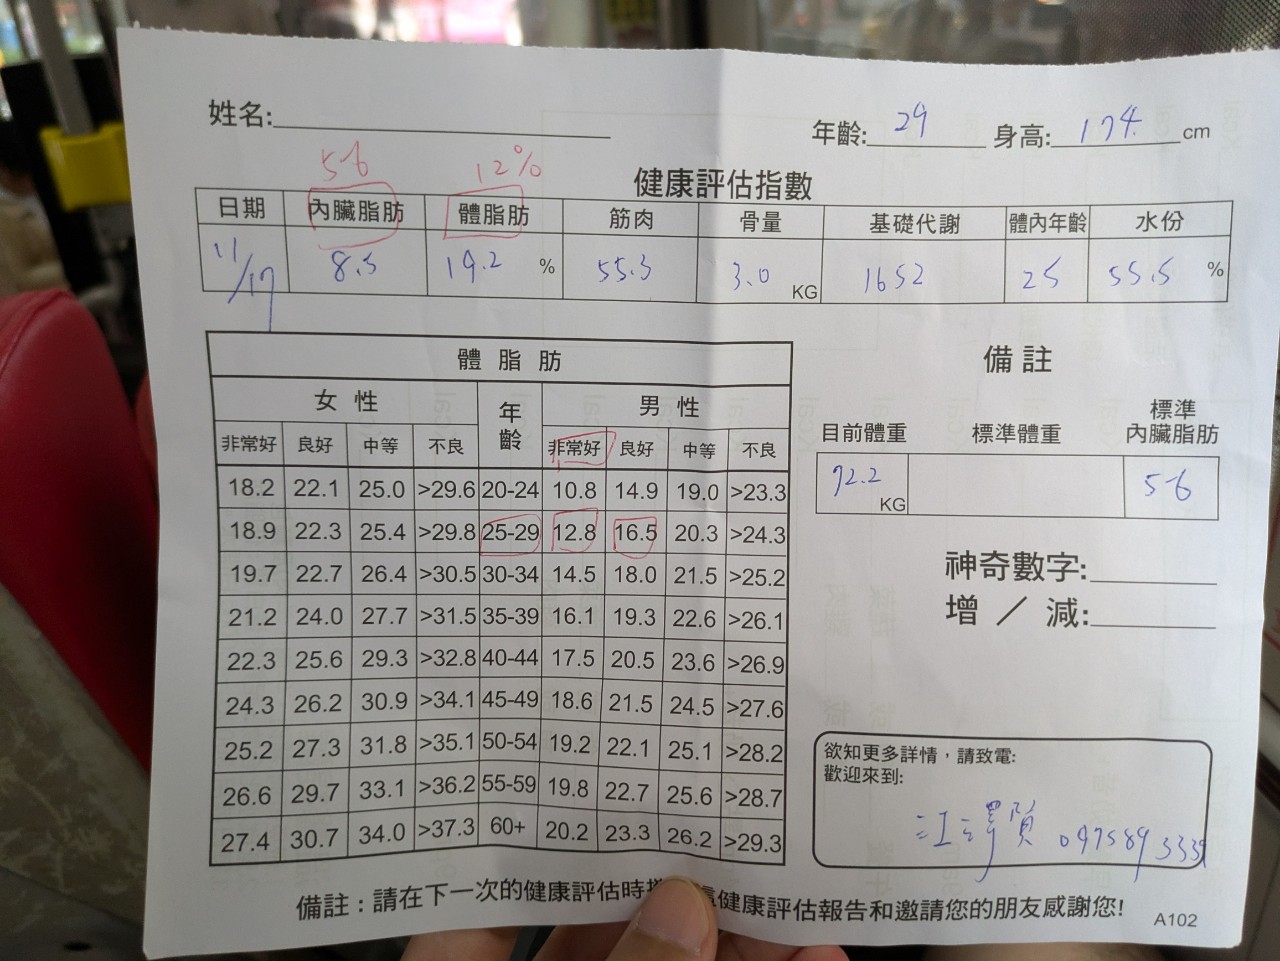 姓名:
年齡: 29 身高: 174 cm
5-6 12%
健康評估指數
日期 內臟脂肪 體脂肪 筋肉 骨量 基礎代謝 體內年齡 水份
11/17 8.5 19.2 % 55.3 3.0 KG 1652 25 55.5 %
體脂肪
女性 年齡 男性
非常好 良好 中等 不良 非常好 良好 中等 不良
18.2 22.1 25.0 >29.6 20-24 10.8 14.9 19.0 >23.3
18.9 22.3 25.4 >29.8 25-29 12.8 16.5 20.3 >24.3
19.7 22.7 26.4 >30.5 30-34 14.5 18.0 21.5 >25.2
21.2 24.0 27.7 >31.5 35-39 16.1 19.3 22.6 >26.1
22.3 25.6 29.3 >32.8 40-44 17.5 20.5 23.6 >26.9
24.3 26.2 30.9 >34.1 45-49 18.6 21.5 24.5 >27.6
25.2 27.3 31.8 >35.1 50-54 19.2 22.1 25.1 >28.2
26.6 29.7 33.1 >36.2 55-59 19.8 22.7 25.6 >28.7
27.4 30.7 34.0 >37.3 60+ 20.2 23.3 26.2 >29.3
備註
目前體重 標準體重 標準內臟脂肪
72.2 KG 5-6
神奇數字:
增／減:
欲知更多詳情，請致電:
歡迎來到:
江 0975893339
備註：請在下一次的健康評估時 健康評估報告和邀請您的朋友感謝您!
A102